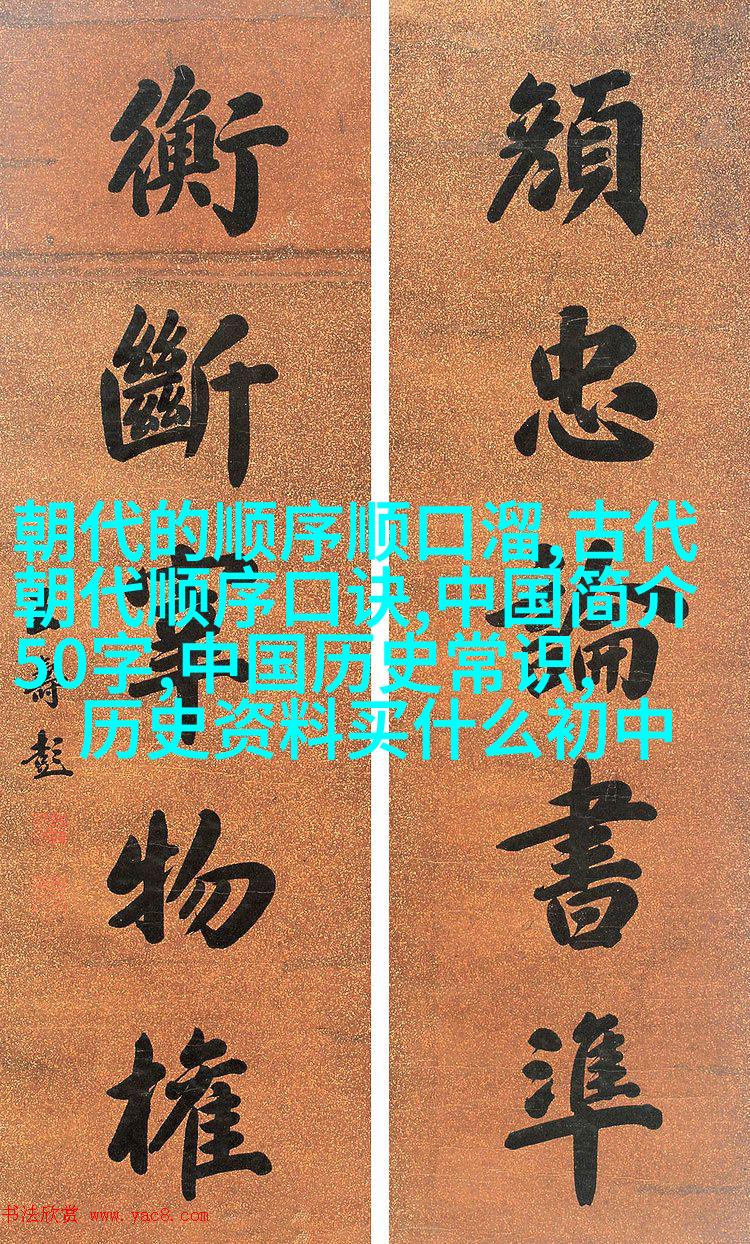 顏忠論書準
衡斷物權
壽彭
朝代的顺序顺口溜,古代
朝代顺序口诀,中国简介
50字,中国历史常识,
历史资料买什么初中
书法欣赏 www.yac8.com